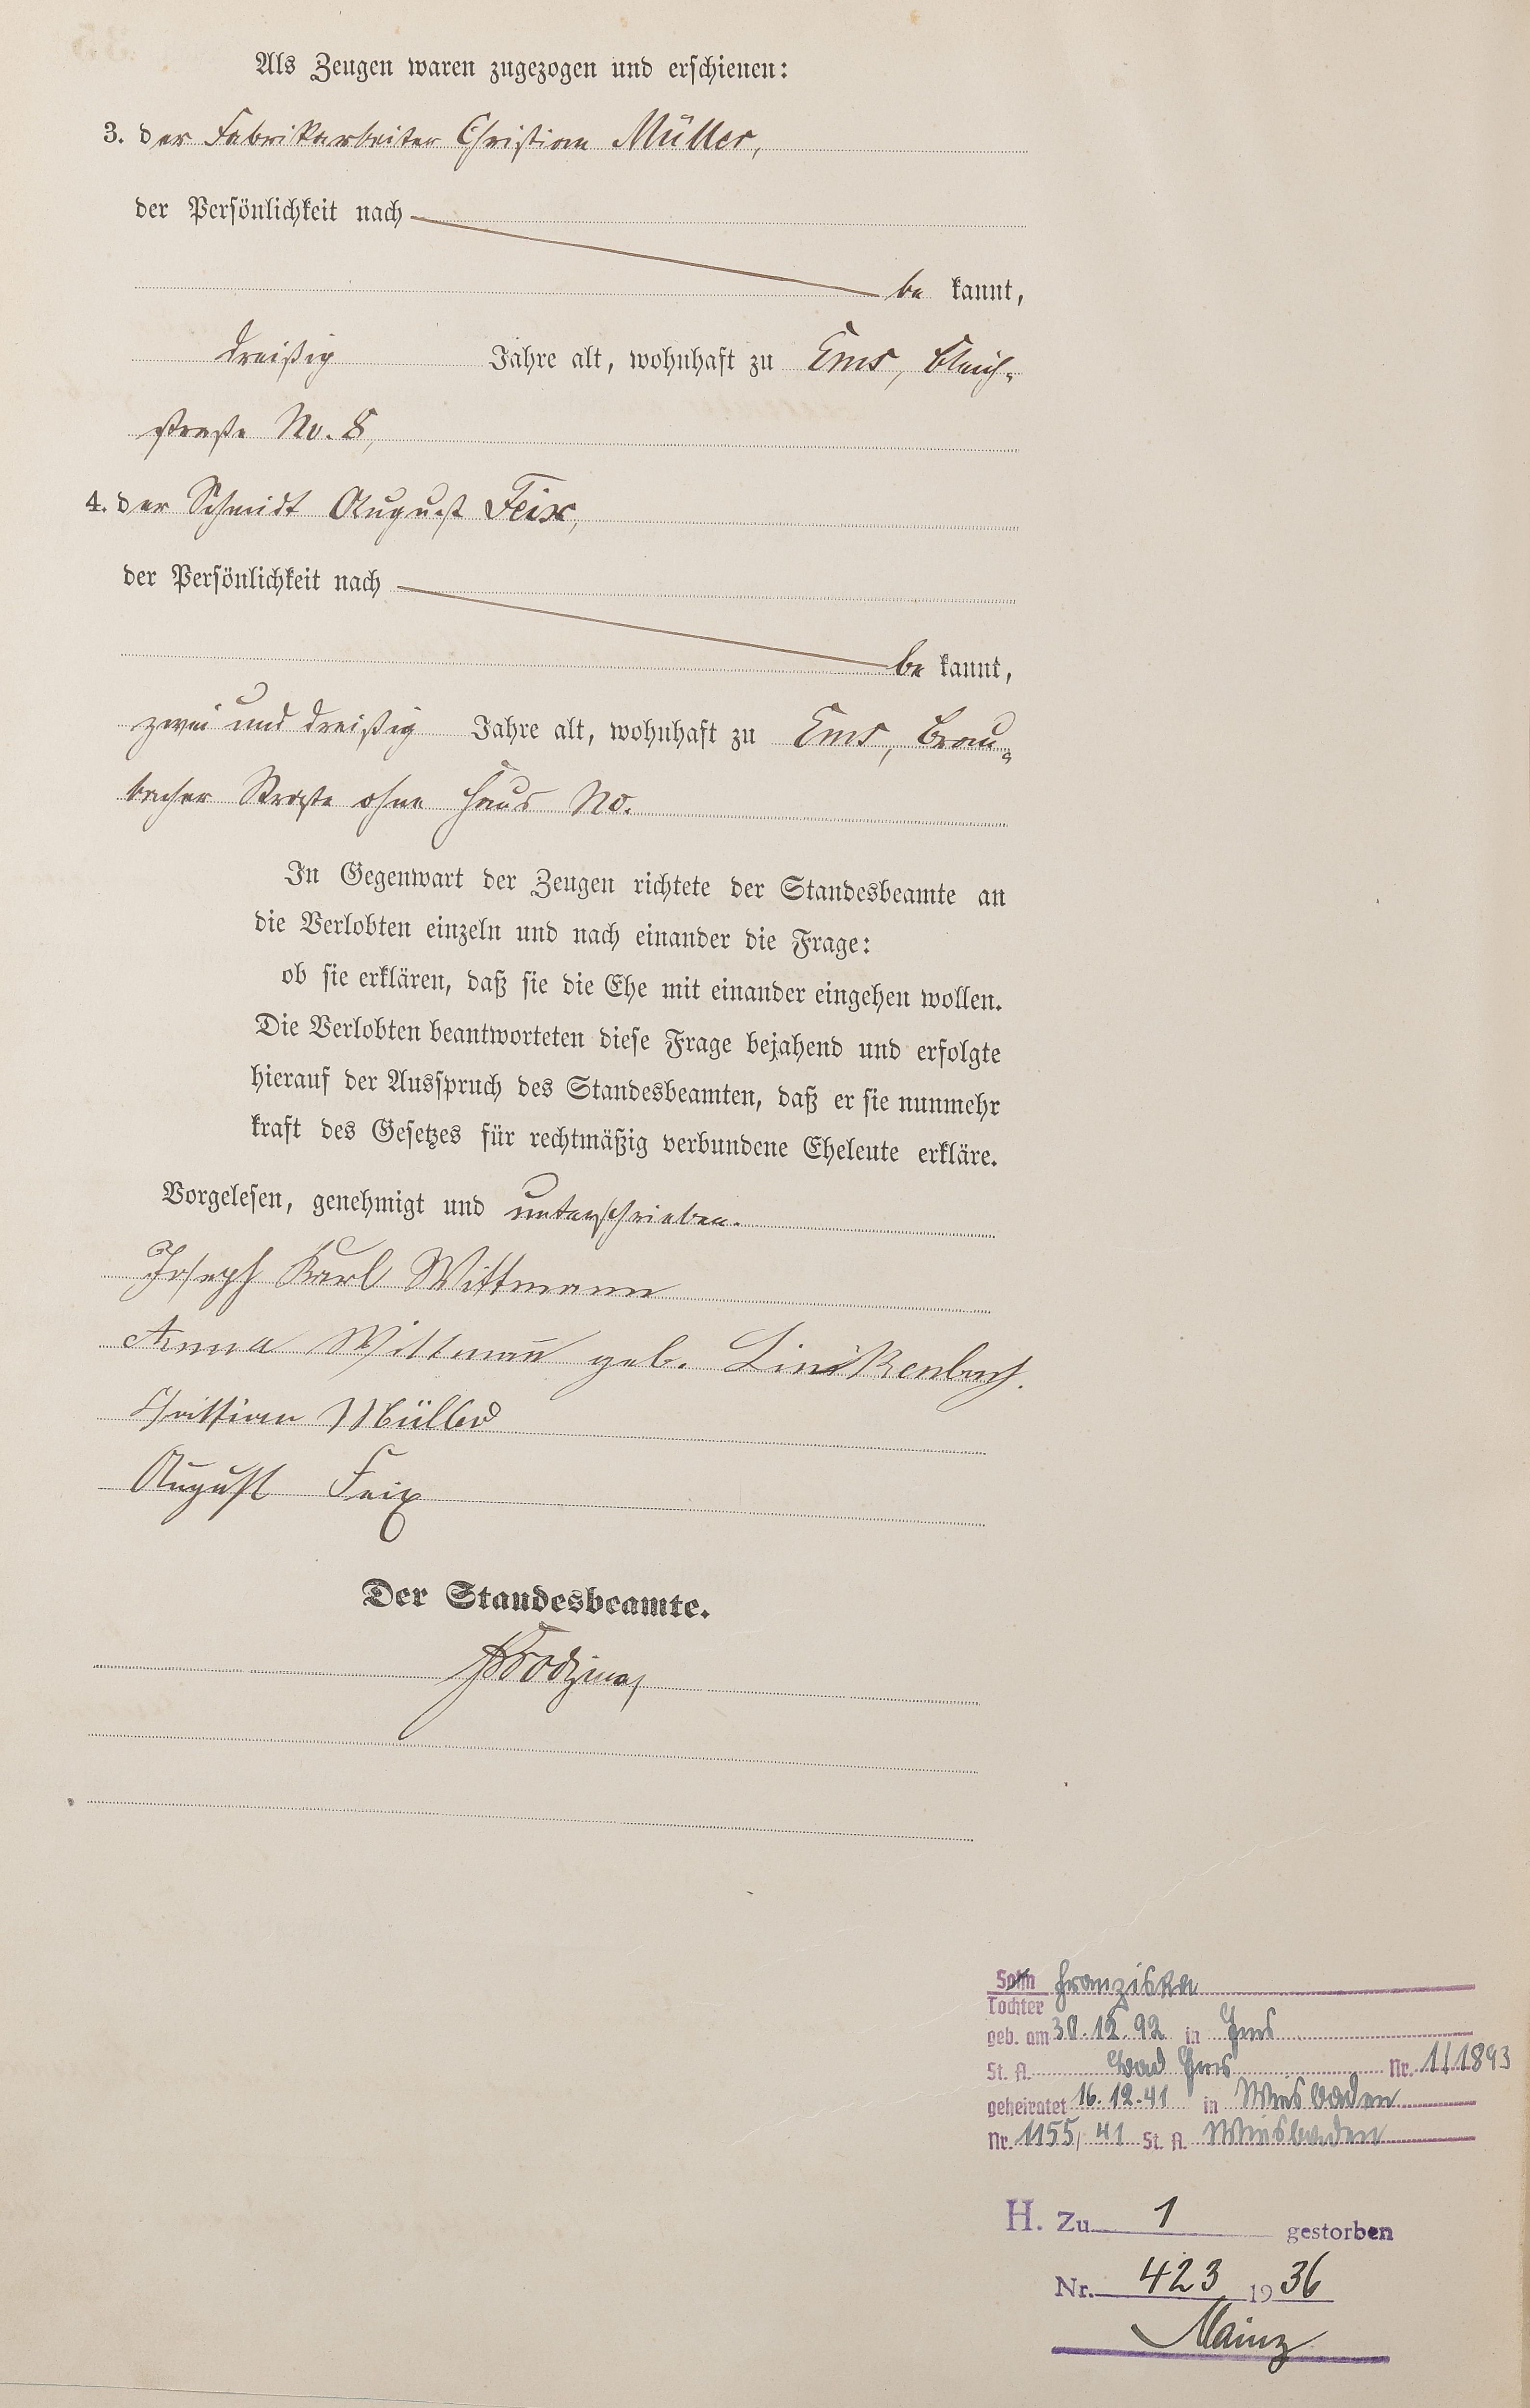 Als Zeugen waren zugezogen und erschienen:
3. der Fabrikarbeiter Christian Müller,
der Persönlichkeit nach
be kannt,
dreißig Jahre alt, wohnhaft zu Ems, Bleich-
straße No. 8,
4. der Schmidt August Feix,
der Persönlichkeit nach
be kannt,
zwei und dreißig Jahre alt, wohnhaft zu Ems, Brau-
bacher Straße ohne Haus No.
In Gegenwart der Zeugen richtete der Standesbeamte an
die Verlobten einzeln und nach einander die Frage:
ob sie erklären, daß sie die Ehe mit einander eingehen wollen.
Die Verlobten beantworteten diese Frage bejahend und erfolgte
hierauf der Ausspruch des Standesbeamten, daß er sie nunmehr
kraft des Gesetzes für rechtmäßig verbundene Eheleute erkläre.
Vorgelesen, genehmigt und unterschrieben.
Joseph Karl Wittmann
Anna Wittmann geb. Linkenbach.
Christian Müller
August Feix
Der Standesbeamte.
Sohn Franziska
Tochter
geb. am 30.12.92 in Ems
St. A. Bad Ems Nr. 1/1893
geheiratet 16.12.41 in Wiesbaden
Nr. 1155/41 St. A. Wiesbaden
H. Zu 1 gestorben
Nr. 423 1936
Mainz